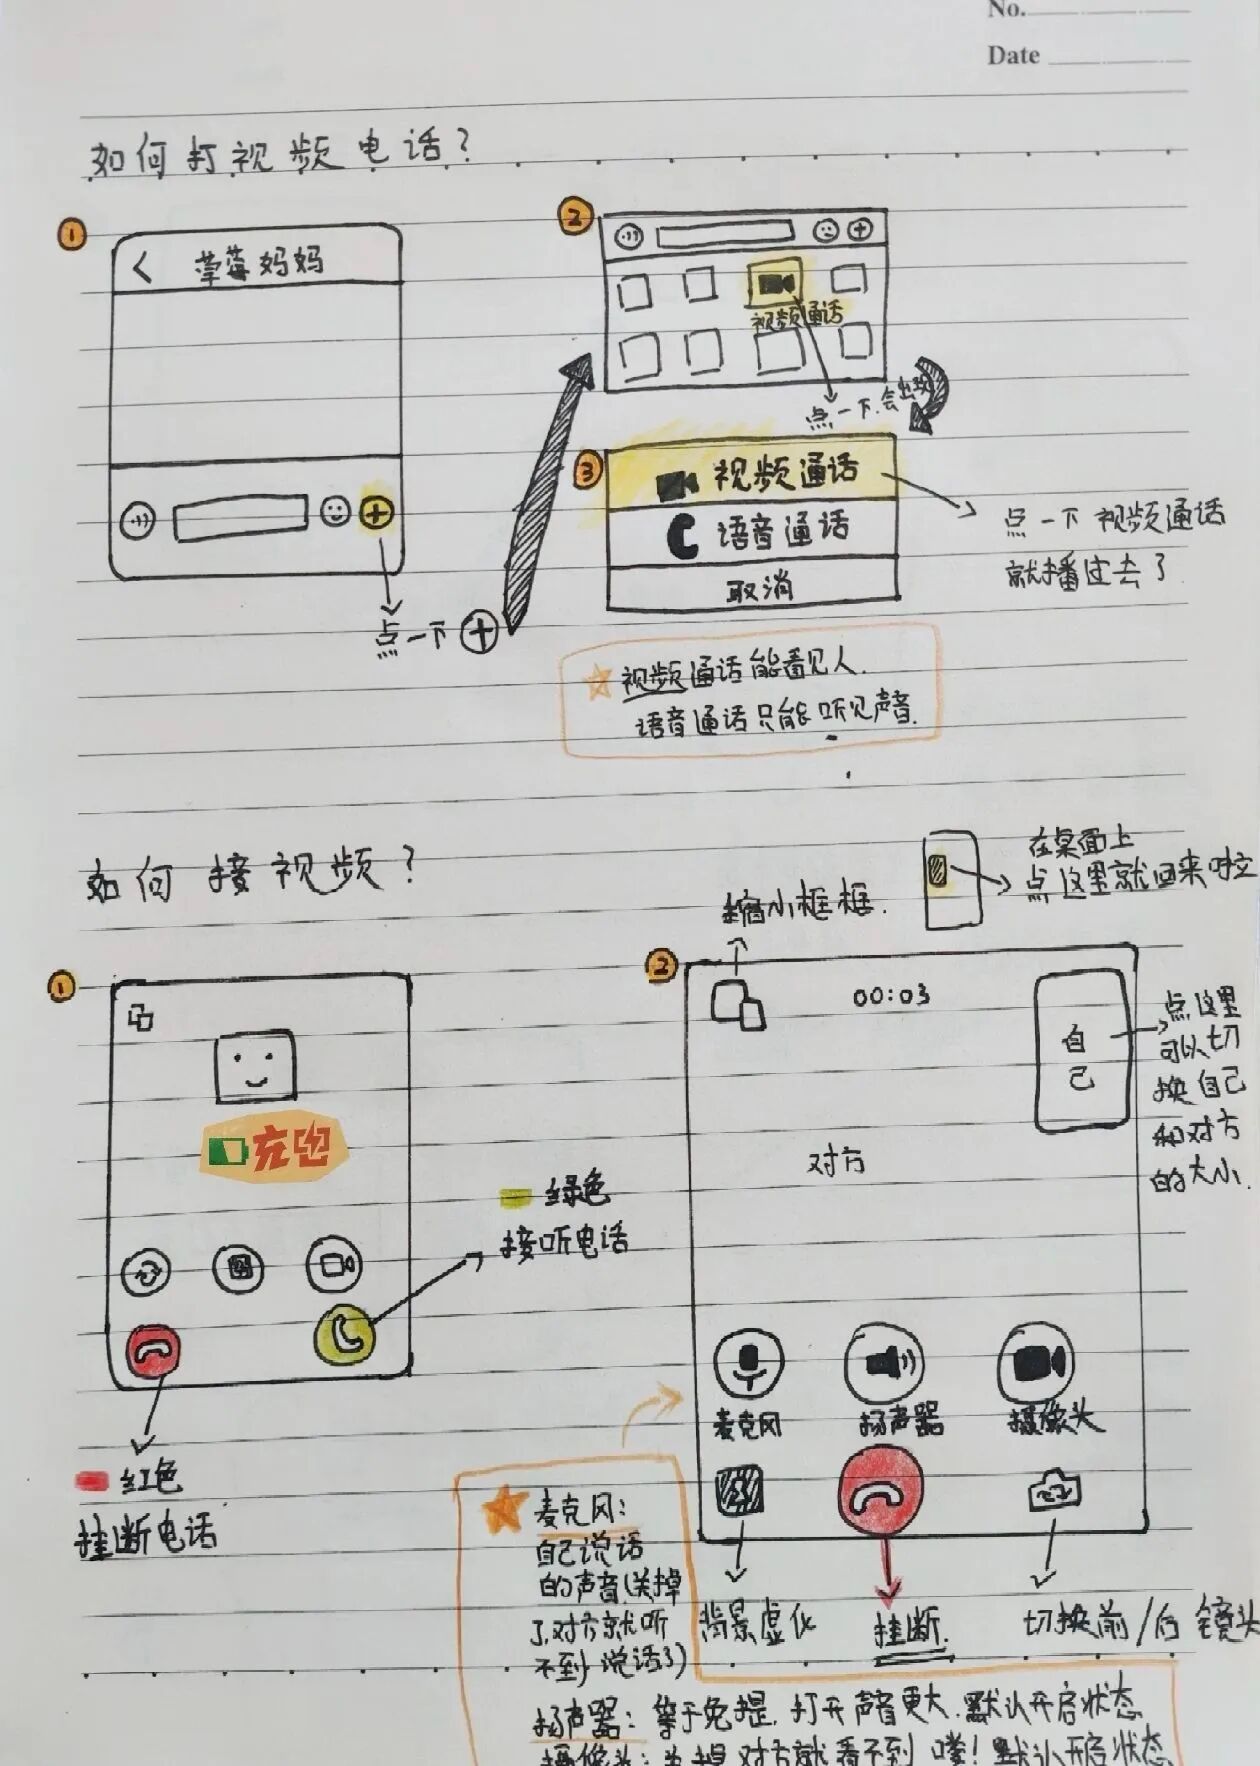 No.
Date
如何打视频电话?
①
莓妈妈
点一下
②
视频通话
点一下.会出现
③
视频通话
语音通话
取消
点一下视频通话
就播过去了
视频通话能看见人.
语音通话只能听见声音.
如何接视频?
①
充电
绿色
接听电话
红色
挂断电话
在桌面上
点这里就回来啦
缩小框框.
②
00:03
自
己
点这里
可以切
换自己
和对方
的大小.
对方
麦克风
扬声器
摄像头
背景虚化
挂断.
切换前/后镜头
麦克风:
自己说话
的声音(关掉
了对方就听
不到说话了)
扬声器:等于免提,打开声音更大.默认开启状态
摄像头:关掉对方就看不到喽!默认开启状态